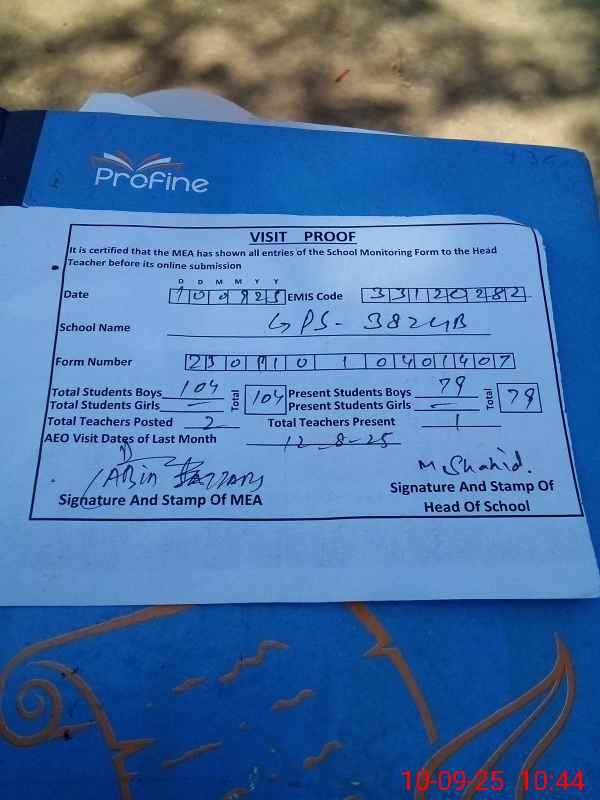 Profine
VISIT PROOF
It is certified that the MEA has shown all entries of the School Monitoring Form to the Head
Teacher before its online submission
D D M M Y Y
Date 100925 EMIS Code 33120282
School Name GPS - 382GB
Form Number
Total Students Boys 104 Total 104 Present Students Boys 79 Total 79
Total Students Girls — Present Students Girls —
Total Teachers Posted 2 Total Teachers Present 1
AEO Visit Dates of Last Month 12-8-25
M. Shahid.
Signature And Stamp Of MEA Signature And Stamp Of
Head Of School
10-09-25 10:44